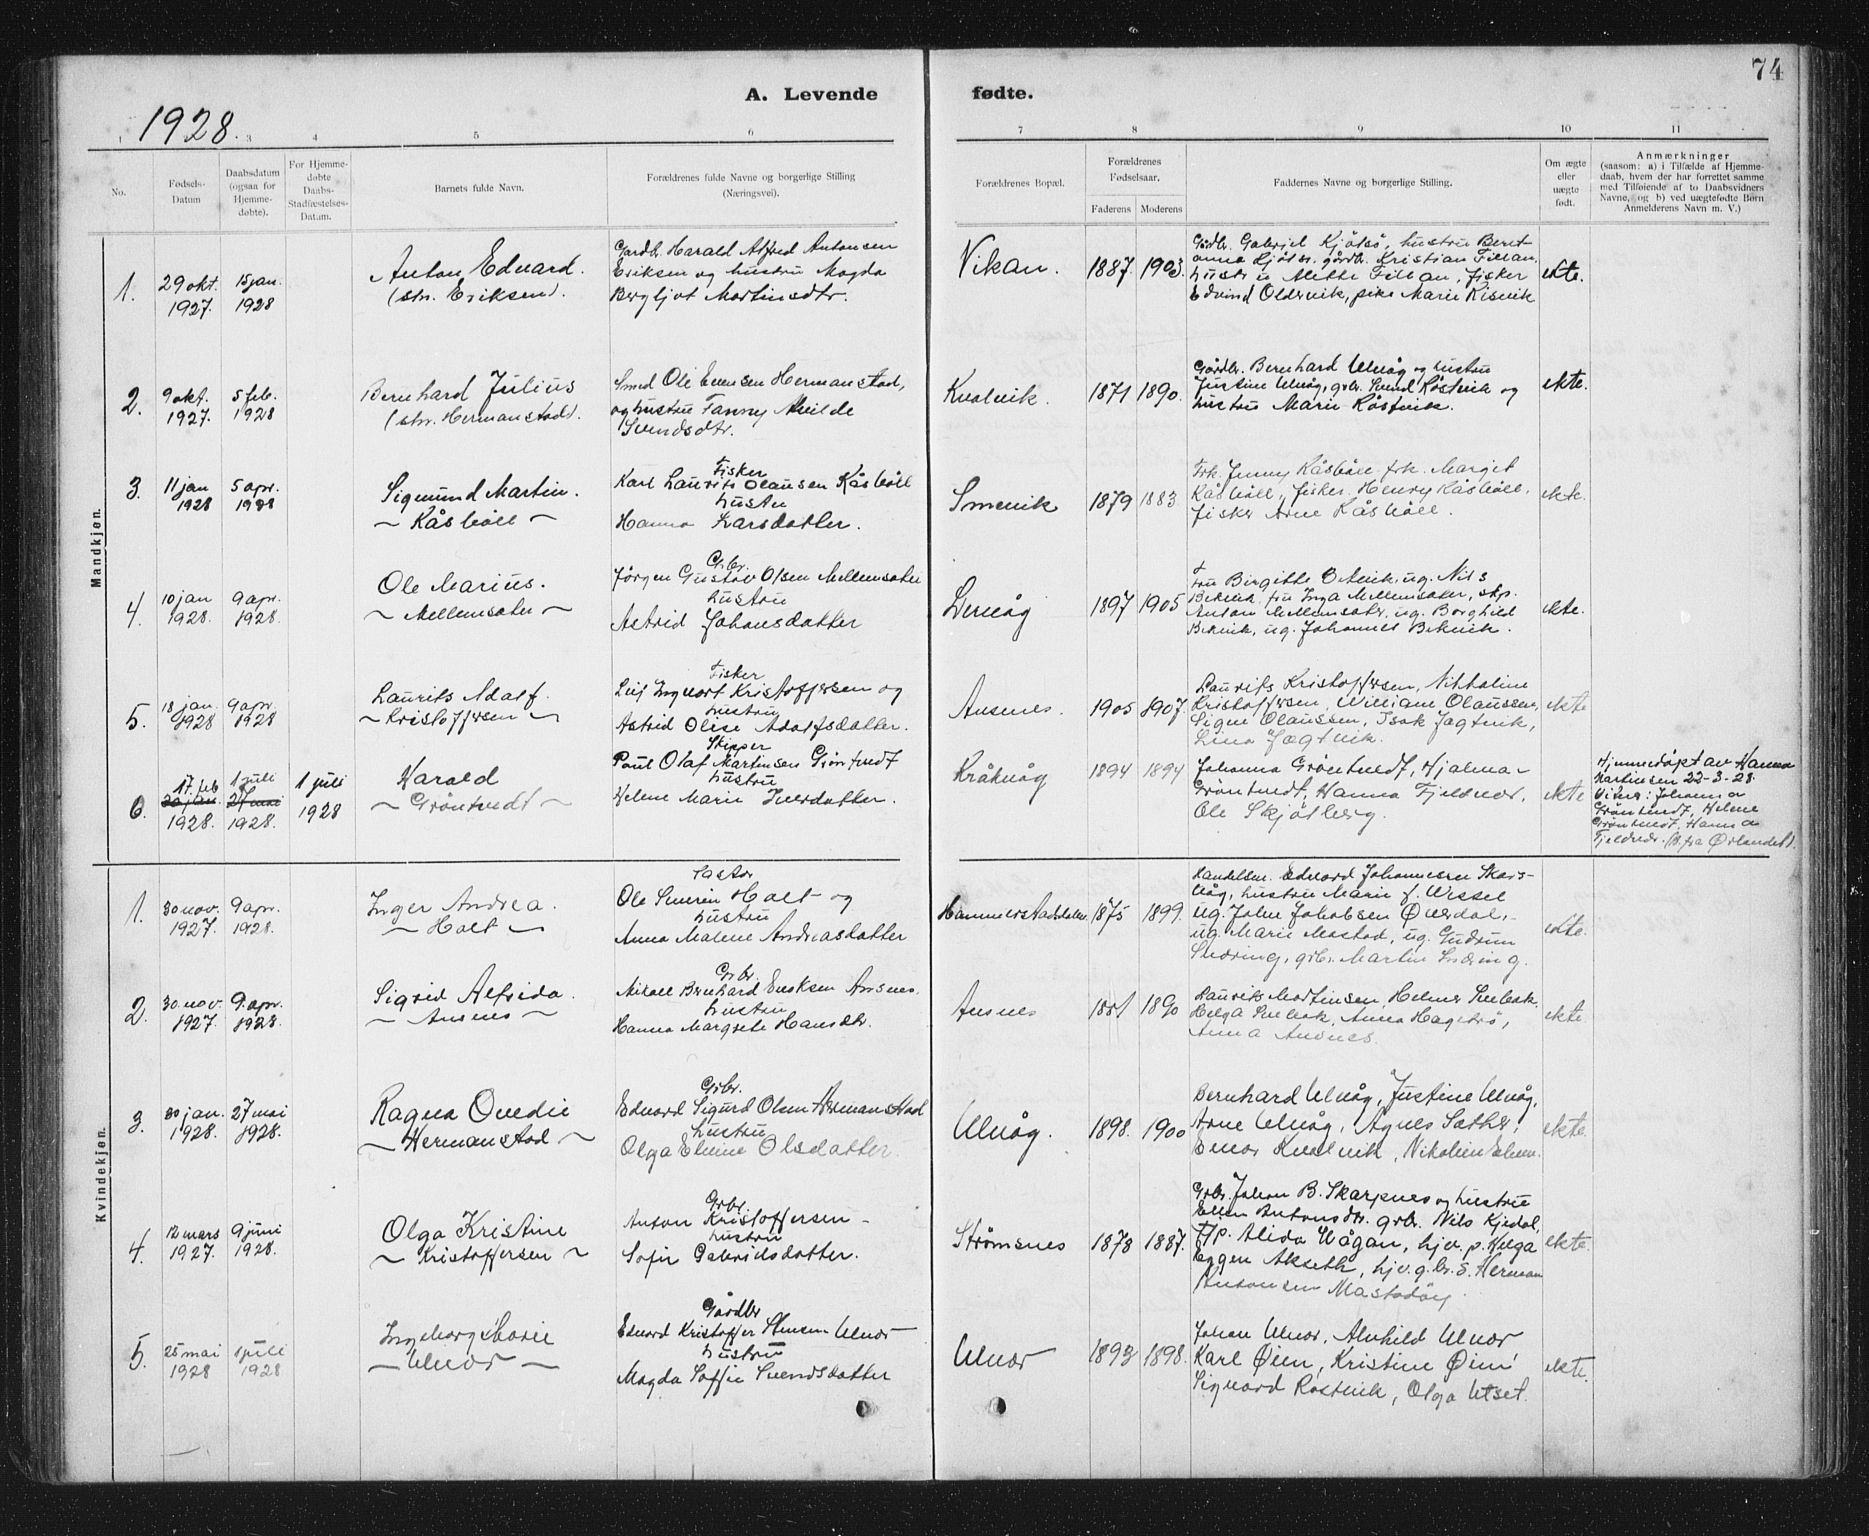 74
A. Levende fødte.
1928.
1 3 4 5 6 7 8 9 10 11
No.
Fødsels-
Datum
Daabsdatum
(ogsaa for
Hjemme-
døbte).
For Hjemme-
døbte
Daabs-
Stadfæstelses-
Datum.
Barnets fulde Navn.
Forældrenes fulde Navne og borgerlige Stilling
(Næringsvei).
Forældrenes Bopæl.
Forældrenes
Fødselsaar.
Faderens Moderens
Faddernes Navne og borgerlige Stilling.
Om ægte
eller
uægte
født.
Anmærkninger
(saasom: a) i Tilfælde af Hjemme-
daab, hvem der har forrettet samme
med Tilføiende af to Daabsvidners
Navne, og b) ved uægtefødte Børn
Anmelderens Navn m. V.)
Mandkjøn.
1.
29 okt.
1927.
15 jan.
1928
Anton Edvard.
(stn. Eriksen).
Gardb. Harald Alfred Antonsen
Eriksen og hustru Magda
Bergljot Martinsdtr.
Vikan.
1887. 1903.
Gårdbr. Gabriel Kjøtsø, hustru Beret-
anna Kjøtsø. gårdb. Kristian Fillan
hustru Mette Fillan, fisker
Edvind Oldervik, pike Marie Risvik
ekte.
2.
9 okt.
1927.
5 feb.
1928
Bernhard Julius
(stn. Hermanstad).
Smed Ole Evensen Hermanstad,
og hustru Fanny Alvilde
Svendsdtr.
Kvalvik.
1871 1890.
Gårdbr. Bernhard Ulvåg og hustru
Justine Ulvåg, grbr. Svend Røstvik og
hustru Marie Røstvik.
ekte.
3.
11 jan
1928
5 apr.
1928
Sigmund Martin.
~ Kåsbøll ~
Fisker
Karl Laurits Olausen Kåsbøll
hustru
Hanna Larsdatter.
Smevik
1879 1883.
Frk. Jenny Kåsbøll. frk. Margit
Kåsbøll, fisker Henry Kåsbøll,
fisker Arne Kåsbøll.
ekte.
4.
10 jan
1928.
9 apr.
1928.
Ole Marius.
~ Mellemsæter ~
Grbr.
Jørgen Gustav Olsen Mellemsæter
hustru
Astrid Johansdatter
Lervåg
1897 1905
Fru Birgitte Bekvik, ug. Nils
Bekvik, fru Inga Mellemsæter,
Anton Mellemsæter, ug. Borghild
Bekvik, ug. Johannes Bekvik.
ekte.
5.
18 jan.
1928
9 apr.
1928
Laurits Adolf.
~ Kristoffersen ~
Fisker
Leif Ingvart Kristoffersen og
hustru
Astrid Olise Adolfsdatter.
Ansnes.
1905 1907.
Laurits Kristoffersen, Nikoline
Kristoffersen, William Olaussen,
Signe Olaussen, Isak Jægtvik,
Lina Jægtvik.
ekte
6.
17. feb
1928.
1 juli
27 mai
1928.
1 juli
1928
Harald
~ Grøntvedt ~
Skipper
Paul Olaf Martinsen Grøntvedt
hustru
Helene Marie Iversdatter.
Kråkvåg
1894 1894
Johanna Grøntvedt, Hjalmar
Grøntvedt, Hanna Fjeldvær,
Ole Skjøtberg.
ekte
Hjemmedøpt av Hanna
Martinsen 22-3-28.
Vitner: Johanna
Grøntvedt, Helene
Grøntvedt, Hanna
Fjeldvær. (B. fra Ørlandet).
Kvindekjøn.
1.
30 nov.
1927.
9 apr.
1928.
Inger Andrea.
~ Holt ~
Pastor
Ole Severin Holt og
hustru
Anna Malene Andreasdatter
Hammerstaddalen.
1875 1899.
Handelsm. Edvard Johannesen Skars-
våg, hustru Marie f. Wessel
ug. John Jakobsen Øverdal,
ug. Marie Mostad, ug. Gudrun
Snøring, grbr. Martin Snøring.
ekte.
2.
30 nov.
1927.
9. apr.
1928.
Sigrid Alfrida.
~ Ansnes ~
Grbr.
Mikael Bernhard Eriksen Ansnes.
hustru
Hanna Margrete Hansdtr.
Ansnes
1881 1890
Laurits Martinsen, Helmer
Helga, Anna Hagebø,
Anna Ansnes.
ekte.
3.
30 jan.
1928.
27 mai
1928.
Ragna Ovedie
~ Hermanstad ~
Grbr.
Edvard Sigurd Olsen Hermanstad
hustru
Olga Elvine Olsdatter.
Ulvåg.
1898. 1900
Bernhard Ulvåg, Justine Ulvåg,
Arne Ulvåg, Agnes Sæther,
Einar Kvalvik, Nikoline
ekte.
4.
12 mars
1927.
9 juni
1928.
Olga Kristine
~ Kristoffersen ~
Grbr.
Anton Kristoffersen -
hustru
Sofie Gabrielsdatter.
Strømsnes
1878 1887.
Grbr. Johan B. Skarpnes og hustru
Ellen Antonsdtr. grbr. Nils Kjedal,
Alida Vågan, hjv. p. Helga
Eggen Akseth, hjv. g.br.s. Herman
Antonsen Mastadøy.
ekte.
5.
25 mai
1928
1 juli
1928
Ingeborg Marie
~ Ulvær ~
Gårdbr
Edvard Kristoffer Ulvær
hustru
Magda Soffie Svendsdatter
Ulvær
1893 1898.
Johan Ulvær, Alvhild Ulvær
Karl Øien, Kristine Øien
Sigvard Røstvik, Olga Utset.
ekte.